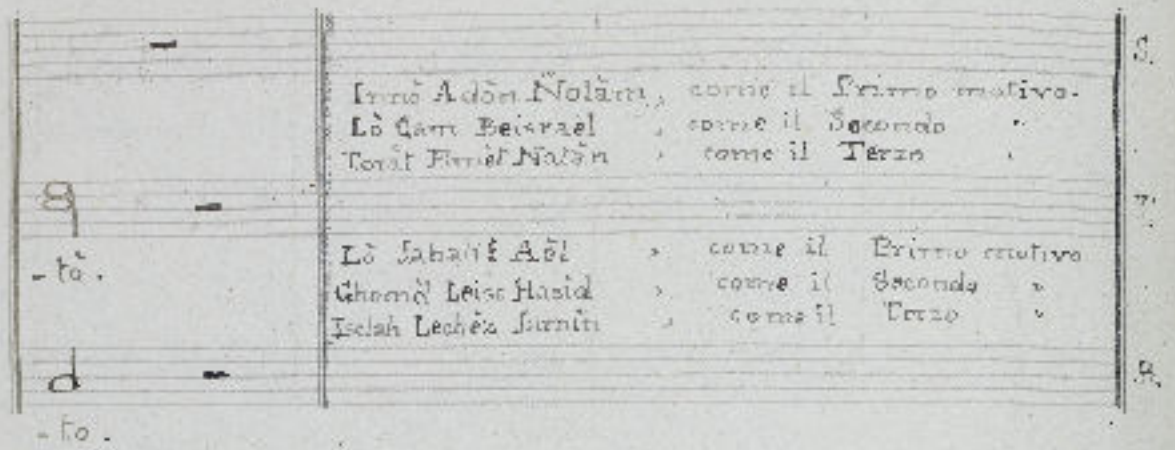 S.
Adòn Nolàm, come il Primo motivo.
Lò Cam Beisrael , come il Secondo "
Toràt Emèt Natàn , come il Terzo "
T.
- tò .
Lò Jahalif Aèl , come il Primo motivo
Ghomèl Leisc Hasid , come il Secondo "
Isclah Lechèz Jamin , come il Terzo "
B.
- to .